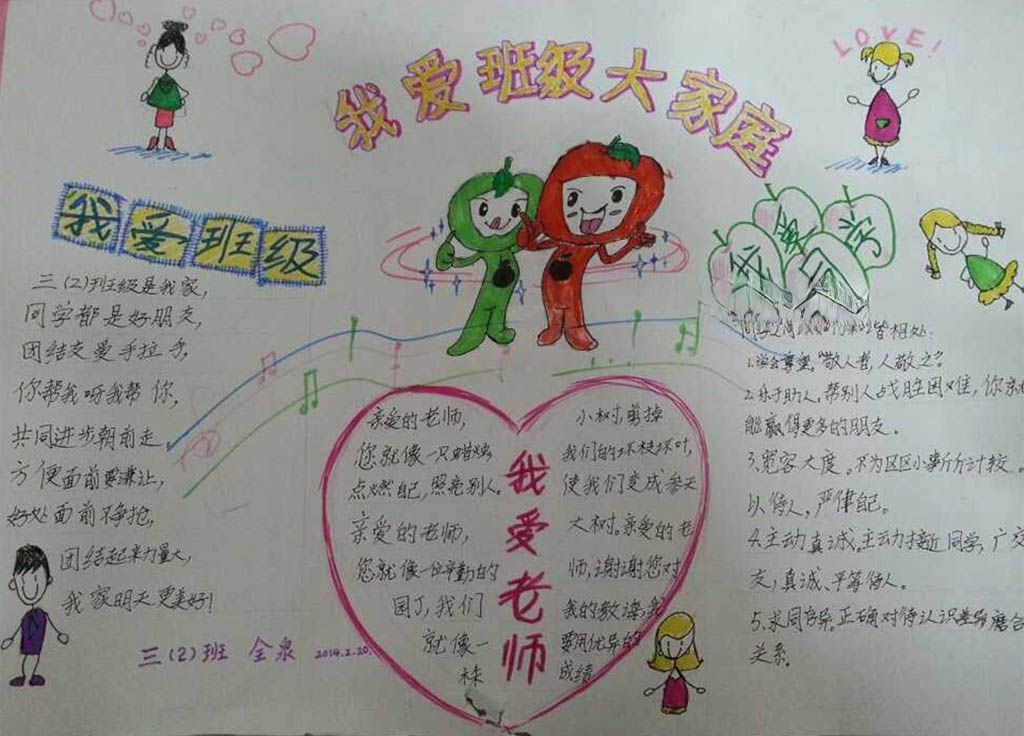 我爱班级大家庭
LOVE!
我爱班级
三(2)班级是我家,
同学都是好朋友,
团结友爱手拉手,
你帮我呀我帮你,
共同进步朝前走,
方便面前要谦让,
好处面前不争抢,
团结起来力量大,
我家明天更美好!
三(2)班 全泉 2014.2.20.
我爱老师
亲爱的老师,
您就像一只蜡烛
点燃自己,照亮别人。
亲爱的老师,
您就像一位辛勤的
园丁,我们
就像一
棵
小树,剪掉
我们的坏枝坏叶,
使我们变成参天
大树。亲爱的老
师,谢谢您对
我的教诲,我
要用优异的
成绩
我爱同学
相处:
1.学会尊重。“敬人者,人敬之”。
2.乐于助人。帮别人战胜困难,你就
能赢得更多的朋友。
3.宽容大度。不为区区小事斤斤计较。
以待人,严律自己。
4.主动真诚。主动接近同学,广交
友,真诚、平等待人。
5.求同存异。正确对待认识差异磨合
关系。